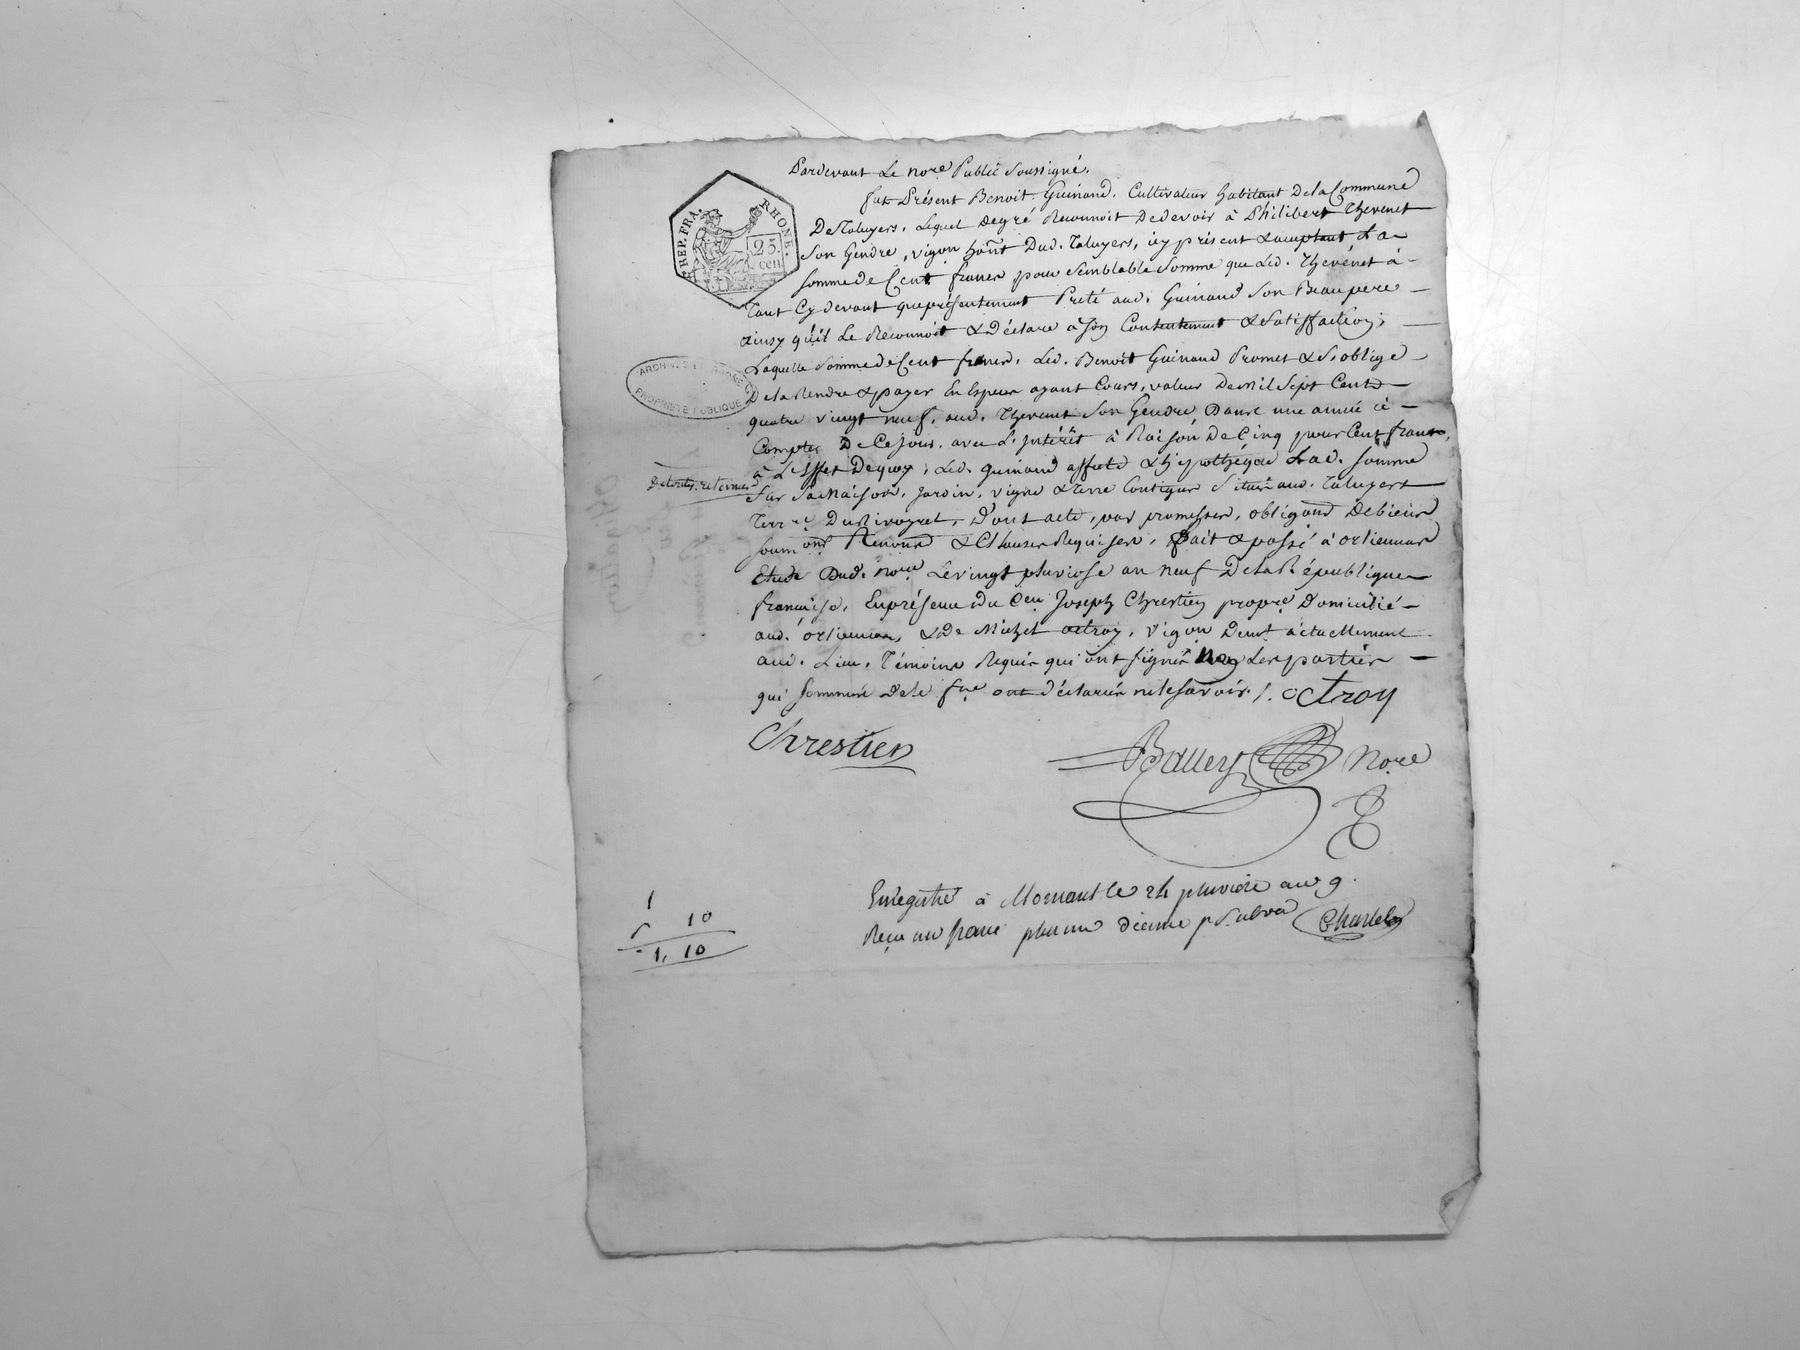 Pardevant Le nore Public Soussigné.
fut Présent Benoit Guinand. Cultivateur habitant De la Commune
De Taluyers. Lequel degré Reconnoit De devoir à Philibert Thevenet
Son Gendre, vigon hānt Dud. Taluyers, icy présent & acceptant La
Somme de Cent francs pour Semblable Somme que Led. Thevenet à
Tant Cy devant que présentement Preté aud. Guinand Son Beaupere
ainsy qu'il Le Reconnoit & Déclare à Son Contentement & Satisfaction;
Laquelle Somme de Cent francs, Led. Benoit Guinand Promet & S'oblige
De la Rendre & payer En Especes ayant Cours, valeur De mil Sept Cents
quatre vingt neuf, aud. Thevenet Son Gendre Dans une année à
Compter De Ce jour, avec L'intérêt à Raison De Cinq pour Cent franc,
à L'effet Dequoy, Led. Guinand affecte & hypothéque Lad. Somme
Sur Sa Maison, Jardin, vigne & Terre Contigue Situés aud. Taluyers
Terre Du Rivoyret, D'ont acte, par promesses, obligaōns De biens
soumons Renons & Clauses Requises, Fait & passé à orlienas
Etude Dud. nore Le vingt pluviose an neuf De la République
française, En présence du Cen Joseph Chrestien propre Domicilié
aud. orlienas, & De Michel octroy, vigon Demt actuellement
aud. Lieu, Témoins Requis qui ont signés Non Les parties
qui sommés de le fre ont déclarés ne le savoir /. octroy
Chrestien
Balley Nore
Enregistré à Mornant le 24 pluviôse an 9.
Reçu un franc plus un décime pr Subvon Charlet
REP. FRA.
RHONE.
25
cen
ARCHIVES
PROPRIÉTÉ PUBLIQUE
1
10
1, 10